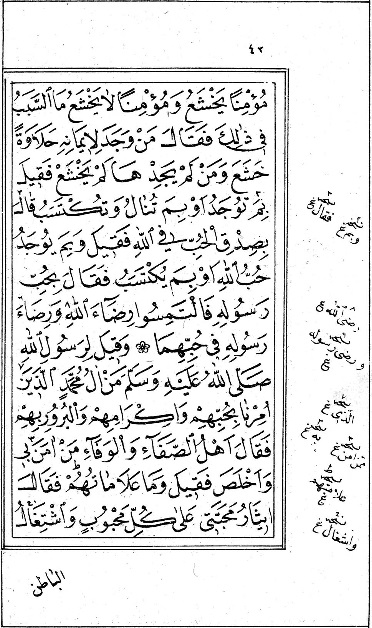 ٤٢
مُؤْمِنًا يَخْشَعُ وَمُؤْمِنًا لَا يَخْشَعُ مَا السَّبَبُ
فِي ذٰلِكَ فَقَالَ مَنْ وَجَدَ لِإِيمَانِهِ حَلَاوَةً
خَشَعَ وَمَنْ لَمْ يَجِدْهَا لَمْ يَخْشَعْ فَقِيلَ
بِمَ تُوجَدُ اَوْ بِمَ تُنَالُ وَتُكْتَسَبُ قَالَ
بِصِدْقِ الْحُبِّ فِي اللهِ فَقِيلَ وَبِمَ يُوجَدُ
حُبُّ اللهِ اَوْ بِمَ يُكْتَسَبُ فَقَالَ بِحُبِّ
رَسُولِهِ فَالْتَمِسُوا رِضَاءَ اللهِ وَرِضَاءَ
رَسُولِهِ فِي حُبِّهِمَا ۞ وَقِيلَ لِرَسُولِ اللهِ
صَلَّى اللهُ عَلَيْهِ وَسَلَّمَ مَنْ اٰلُ مُحَمَّدٍ الَّذِينَ
اُمِرْنَا بِحُبِّهِمْ وَاِكْرَامِهِمْ وَالْبُرُورِ بِهِمْ
فَقَالَ اَهْلُ الصَّفَاءِ وَالْوَفَاءِ مَنْ اٰمَنَ بِي
وَاَخْلَصَ فَقِيلَ وَمَا عَلَامَاتُهُمْ فَقَالَ
اِيثَارُ مَحَبَّتِي عَلٰى كُلِّ مَحْبُوبٍ وَاشْتِغَالُ
فقال
وبم
رضى الله
ورضى رسوله
الذين
واشغال
الباطن